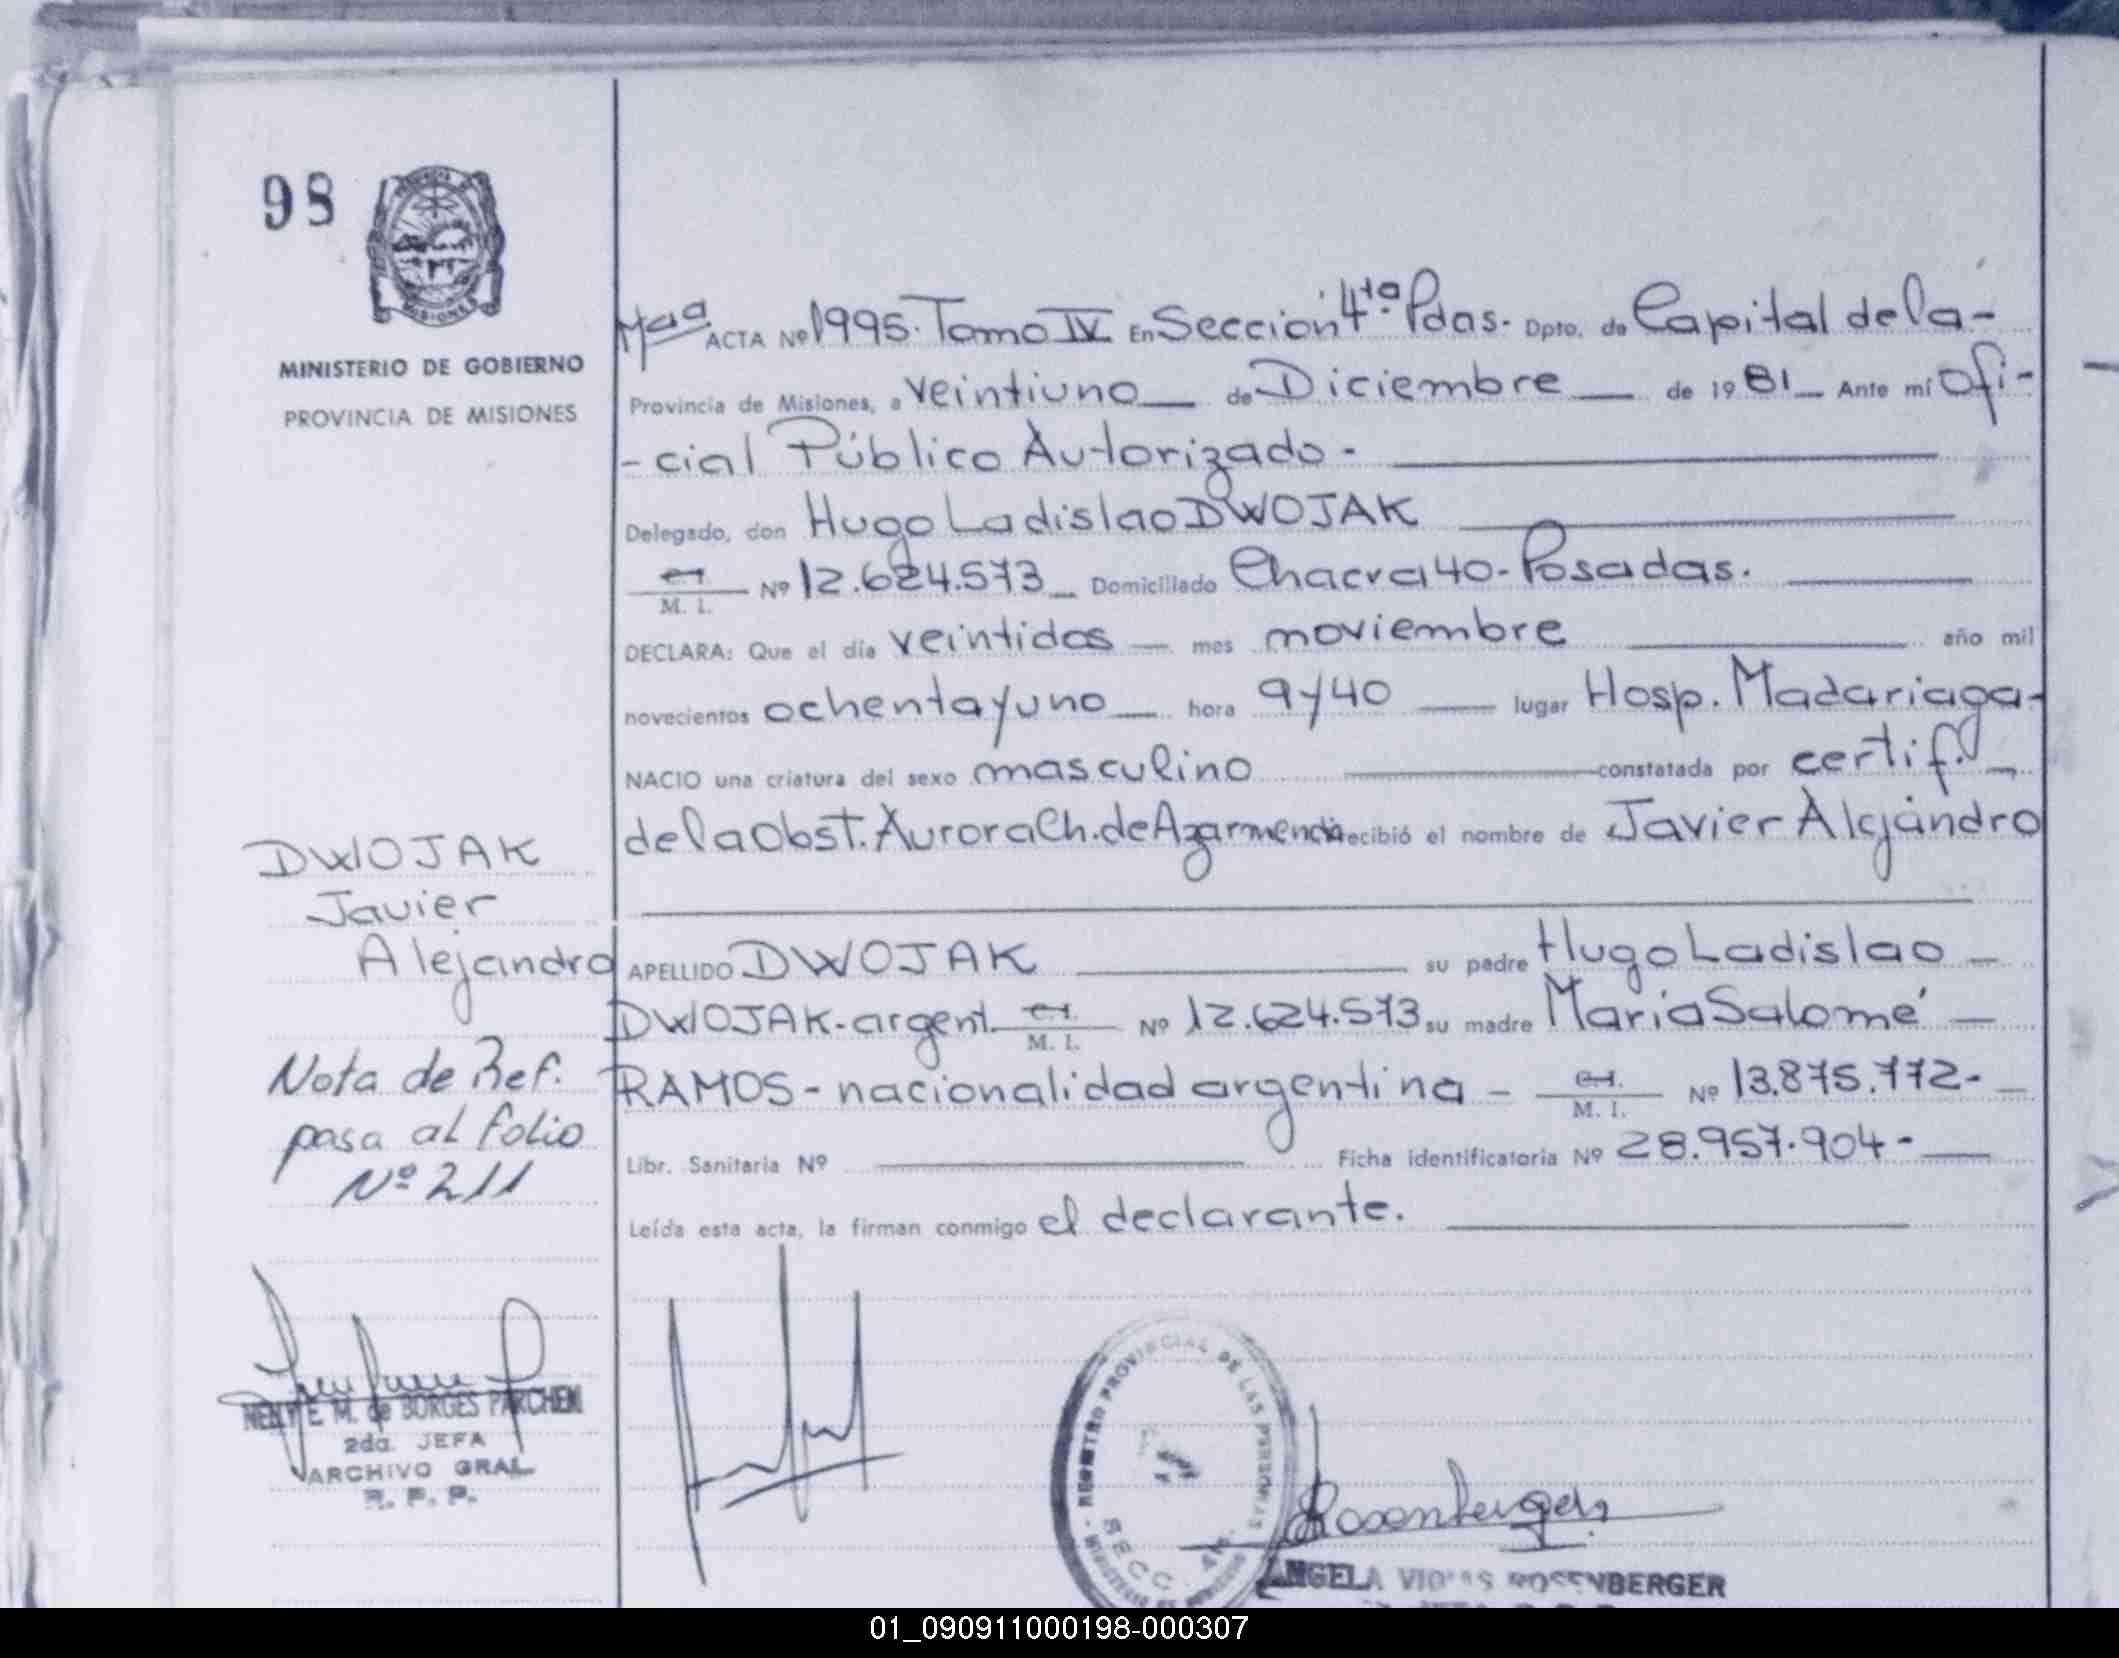 98
MINISTERIO DE GOBIERNO
PROVINCIA DE MISIONES
ACTA Nº 1995. Tomo IV En Sección 4ta. Pdas. Dpto. de Capital de la-
Provincia de Misiones, a veintiuno de Diciembre de 1981 Ante mí Ofi-
-cial Público Autorizado-
Delegado, don Hugo Ladislao DWOJAK
M. I. Nº 12.624.573 Domiciliado Chacra 40- Posadas.
DECLARA: Que el día veintidos mes noviembre año mil
novecientos ochenta y uno hora 9 y 40 lugar Hosp. Madariaga-
NACIO una criatura del sexo masculino constatada por certif.
de la Obst. Aurora Ch. de Azarmendia recibió el nombre de Javier Alejandro
APELLIDO DWOJAK su padre Hugo Ladislao
DWOJAK-argent. M. I. Nº 12.624.573 su madre María Salomé
RAMOS - nacionalidad argentina - M. I. Nº 13.875.772-
Libr. Sanitaria Nº Ficha identificatoria Nº 28.957.904-
Leída esta acta, la firman conmigo el declarante.
DWOJAK
Javier
Alejandro
Nota de Ref.
pasa al folio
Nº 211
NELY E. M. de BORGES PARCHEM
2da. JEFA
ARCHIVO GRAL.
R. P. P.
REGISTRO PROVINCIAL DE LAS PERSONAS
SECC. 4ta.
MINISTERIO DE GOBIERNO
Rosenberger
ANGELA ROSENBERGER
01_090911000198-000307